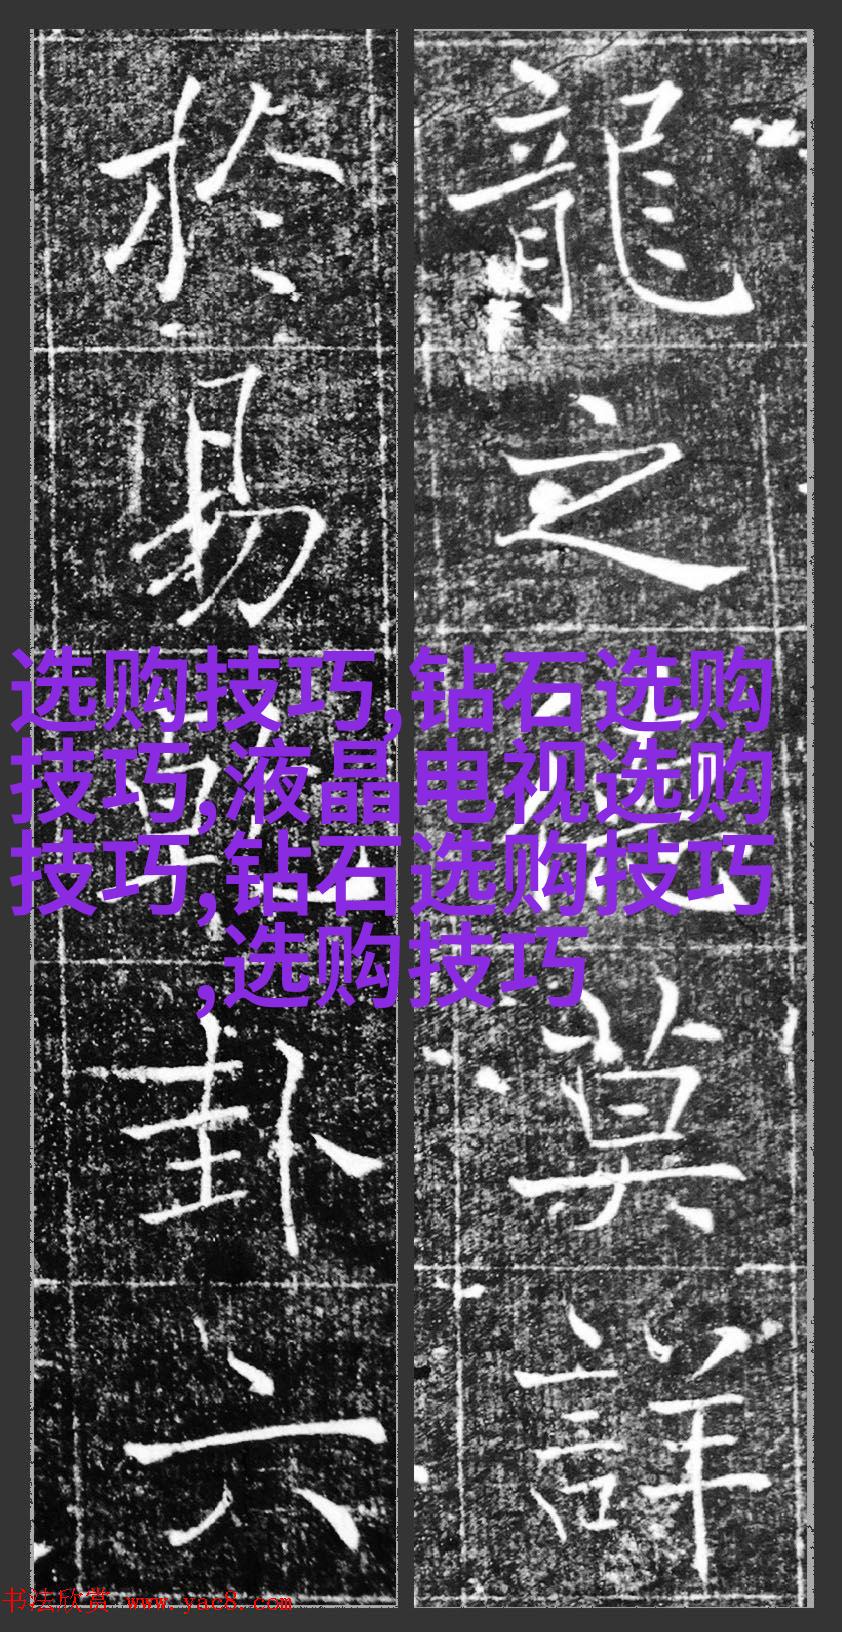 龍之
莫詳
於易
卦六
选购技巧,钻石选购
技巧,液晶电视选购
技巧,钻石选购技巧
,选购技巧
书法欣赏 www.yac8.com